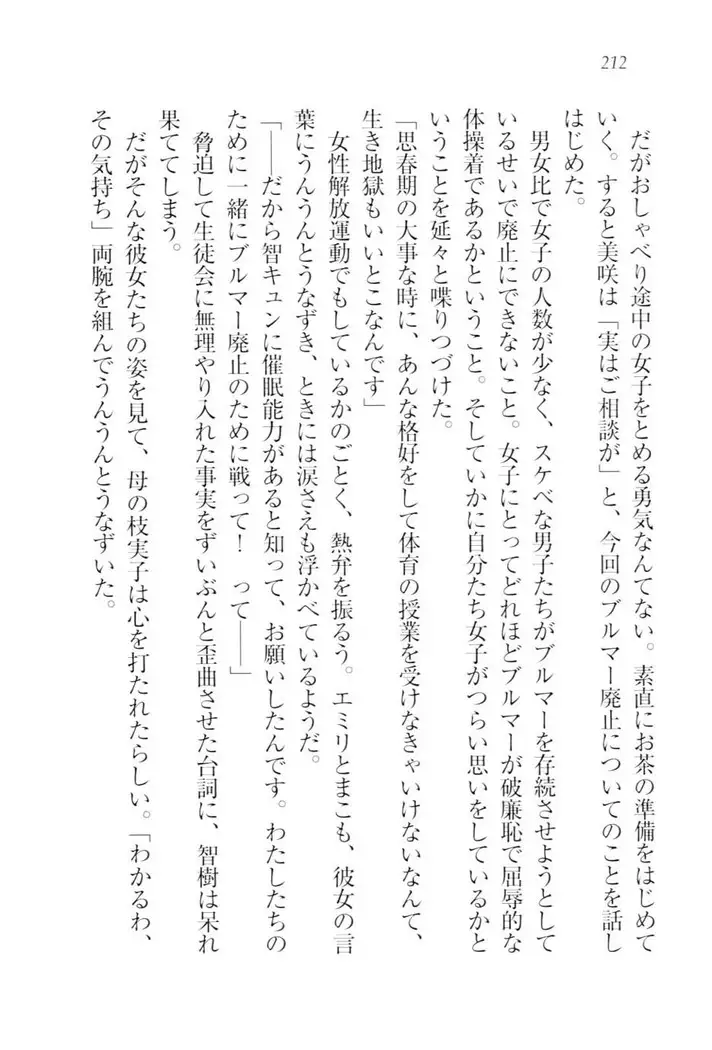 212
だがおしゃべり途中の女子をとめる勇気なんてない。素直にお茶の準備をはじめて
いく。すると美咲は「実はご相談が」と、今回のブルマー廃止についてのことを話し
はじめた。
男女比で女子の人数が少なく、スケベな男子たちがブルマーを存続させようとして
いるせいで廃止にできないこと。女子にとってどれほどブルマーが破廉恥で屈辱的な
体操着であるかということ。そしていかに自分たち女子がつらい思いをしているかと
いうことを延々と喋りつづけた。
「思春期の大事な時に、あんな格好をして体育の授業を受けなきゃいけないなんて、
生き地獄もいいとこなんです」
女性解放運動でもしているかのごとく、熱弁を振るう。エミリとまこも、彼女の言
葉にうんうんとうなずき、ときには涙さえも浮かべているようだ。
「――だから智キュンに催眠能力があると知って、お願いしたんです。わたしたちの
ために一緒にブルマー廃止のために戦って！　って――」
脅迫して生徒会に無理やり入れた事実をずいぶんと歪曲させた台詞に、智樹は呆れ
果ててしまう。
だがそんな彼女たちの姿を見て、母の枝実子は心を打たれたらしい。「わかるわ、
その気持ち」両腕を組んでうんうんとうなずいた。